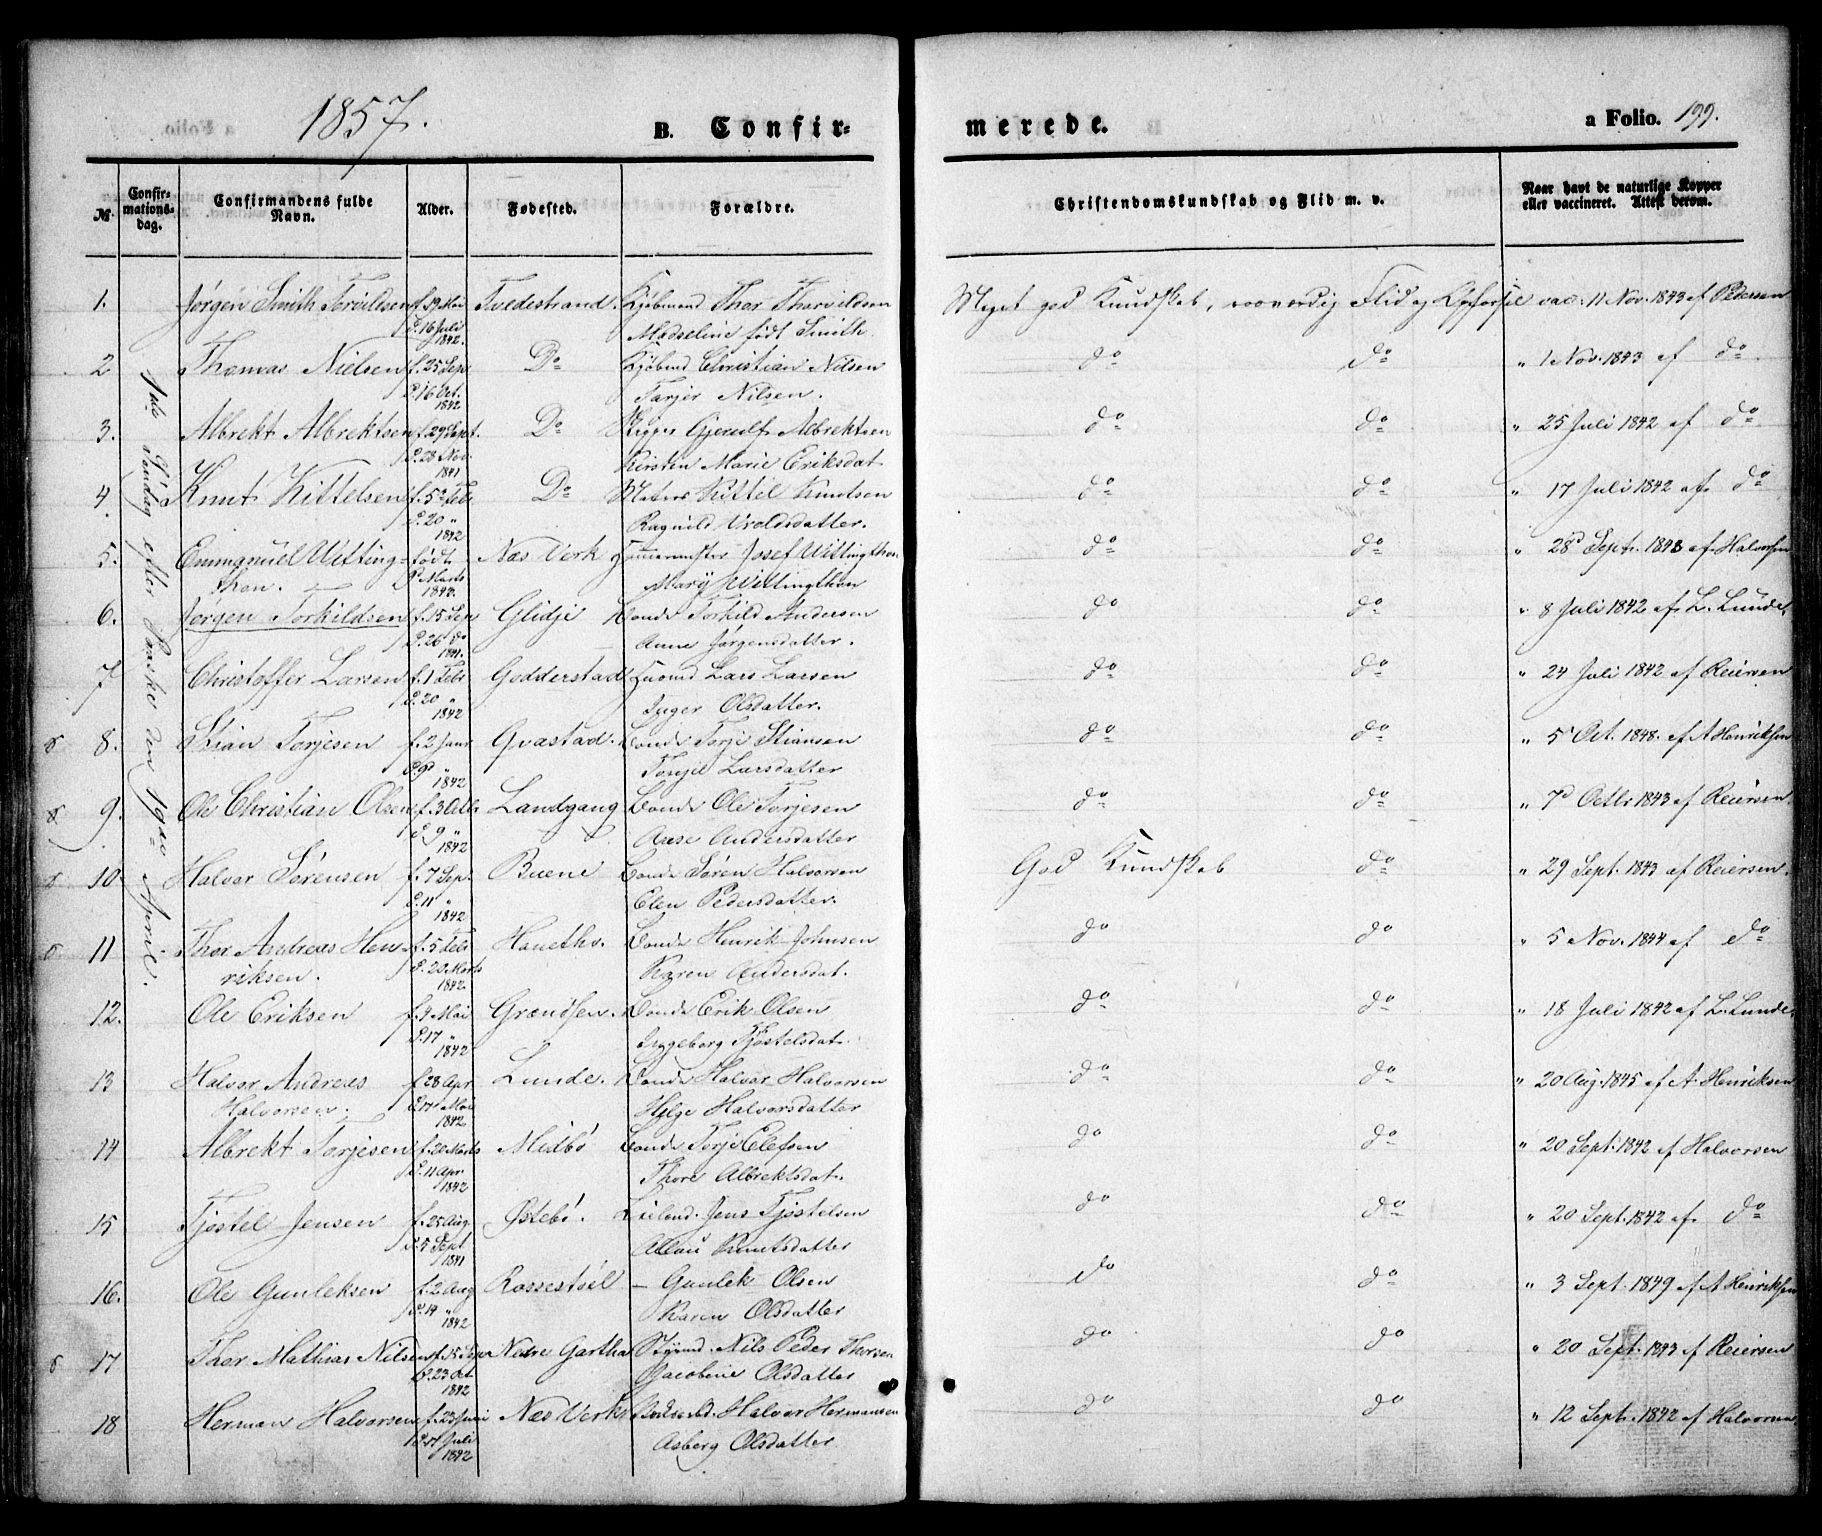 1857.
B. Confir-
merede.
a Folio. 199.
№.
Confir-
mations-
dag.
Confirmandens fulde
Navn.
Alder.
Fødested.
Forældre.
Christendomskundskab og Flid m. v.
Naar havt de naturlige Kopper
eller vaccineret. Attest derom.
1ste Søndag efter Paaske den 19de April.
1. Jørgen Smith Torvildsen f. 19 Mai Tvedestrand. Kjøbmand Thor Thorvildsen Meget god Kundskab, roværdig Flid og Opførsel vac: 11 Nov. 1843 af Pedersen
d. 16 Juli
1842. født Smith.
2 Thomas Nielsen f. 25 Sep. Do Kjøbmd Christian Nilsen do do " 1 Nov. 1843 af do
d. 16 Oct. Tarjer Nilsen.
1842
3. Albrekt Albrektsen f. 29 Sept. Do Skipper Gjerulf Albrektsen do do " 25 Juli 1842 af do
d. 28 Nov. Kirsten Marie Eriksdat.
1841
4. Knut Kittelsen f. 5 Feb Do Matros Kittel Knutsen do do " 17 Juli 1842 af do
d. 20 " Ragnild Uroldsdatter.
1842
5. Emmanuel Witting- født Næs Verk Josef Wittingthon do do " 28d Sept. 1843 af Halvorsen
thon. Marts Mary Wittingthon
1842.
6. Jørgen Torkildsen f. 15 Sep Glidje Bonde Torkild Andersen do do " 8 Juli 1842 af L. Lunde,
d. 26 do Anne Jørgensdatter.
1841.
7 Christoffer Larsen f. 1 Feb Godderstad Husmd Lars Larsen do do " 24 Juli 1842 af Reiersen
d. 20 " Inger Olsdatter.
1842
8. Stian Torjesen f. 2 Janr Gvastad. Bonde Torje Stiansen do do " 5 Oct. 1848. af A Henriksen
d. 9d Larsdatter
1842
9. Ole Christian Olsen f. 3 Landgang Bonde Ole Torjesen do do " 7d Octbr 1843 af Reiersen
d. 9 " Anse Andersdatter
1842
10. Halvor Sørensen f. 7 Sep. Buene Bonde Søren Halvorsen God Kundskab do " 29 Sept. 1843 af Reiersen.
d. 11 " Elen Pedersdatter.
1842
11 Thor Andreas Hen- f. 5 Feb Hanetho. Bonde Henrik Johnsen do do " 5 Nov. 1844 af do
riksen. d. 20 Marts Karen Andersdat.
1842
12. Ole Eriksen f. 4 Mai Grændsen. Bonde Erik Olsen do do " 18 Juli 1842 af L. Lunde,
d. 17 " Ingeborg Tjøstelsdat.
1842
13 Halvor Andreas f. 28 Apr. Lunde. Bonde Halvor Halvorsen do do " 20 Aug. 1845 af A Henriksen
Halvorsen. d. 17 Mai Helge Halvorsdatter
1842
14 Albrekt Torjesen f. 20 Marts Midbø Bonde Torje Elefsen do do " 20 Sept. 1842 af Halvorsen
d. 11 Apr Thore Albrektsdat.
1842
15 Tjøstel Jensen f. 25 Aug Østebø. Jens Tjøstelsen do do " 20 Sept. 1842 af do
d. 5 Sept Knutsdatter
1841
16. Ole Gunleksen f. 2 Aug Rossestøel – Gunlek Olsen do do " 3 Sept. 1849 af A Henriksen
d. 14 " Karen Olsdatter
1842
17 Thor Mathias Nilsen f. 15 Sep Nedre Gartha Styrmd. Nils Peder Thorsen do do " 20 Sept. 1843 af Reiersen
d. 23 Oct. Jacobine Olsdatter
1842
18 Herman Halvorsen f. 23 Juni Næs Verk Halvor Hermansen do do " 12 Sept. 1842 af Halvorsen
d. 17 Juli Asberg Olsdatter
1842